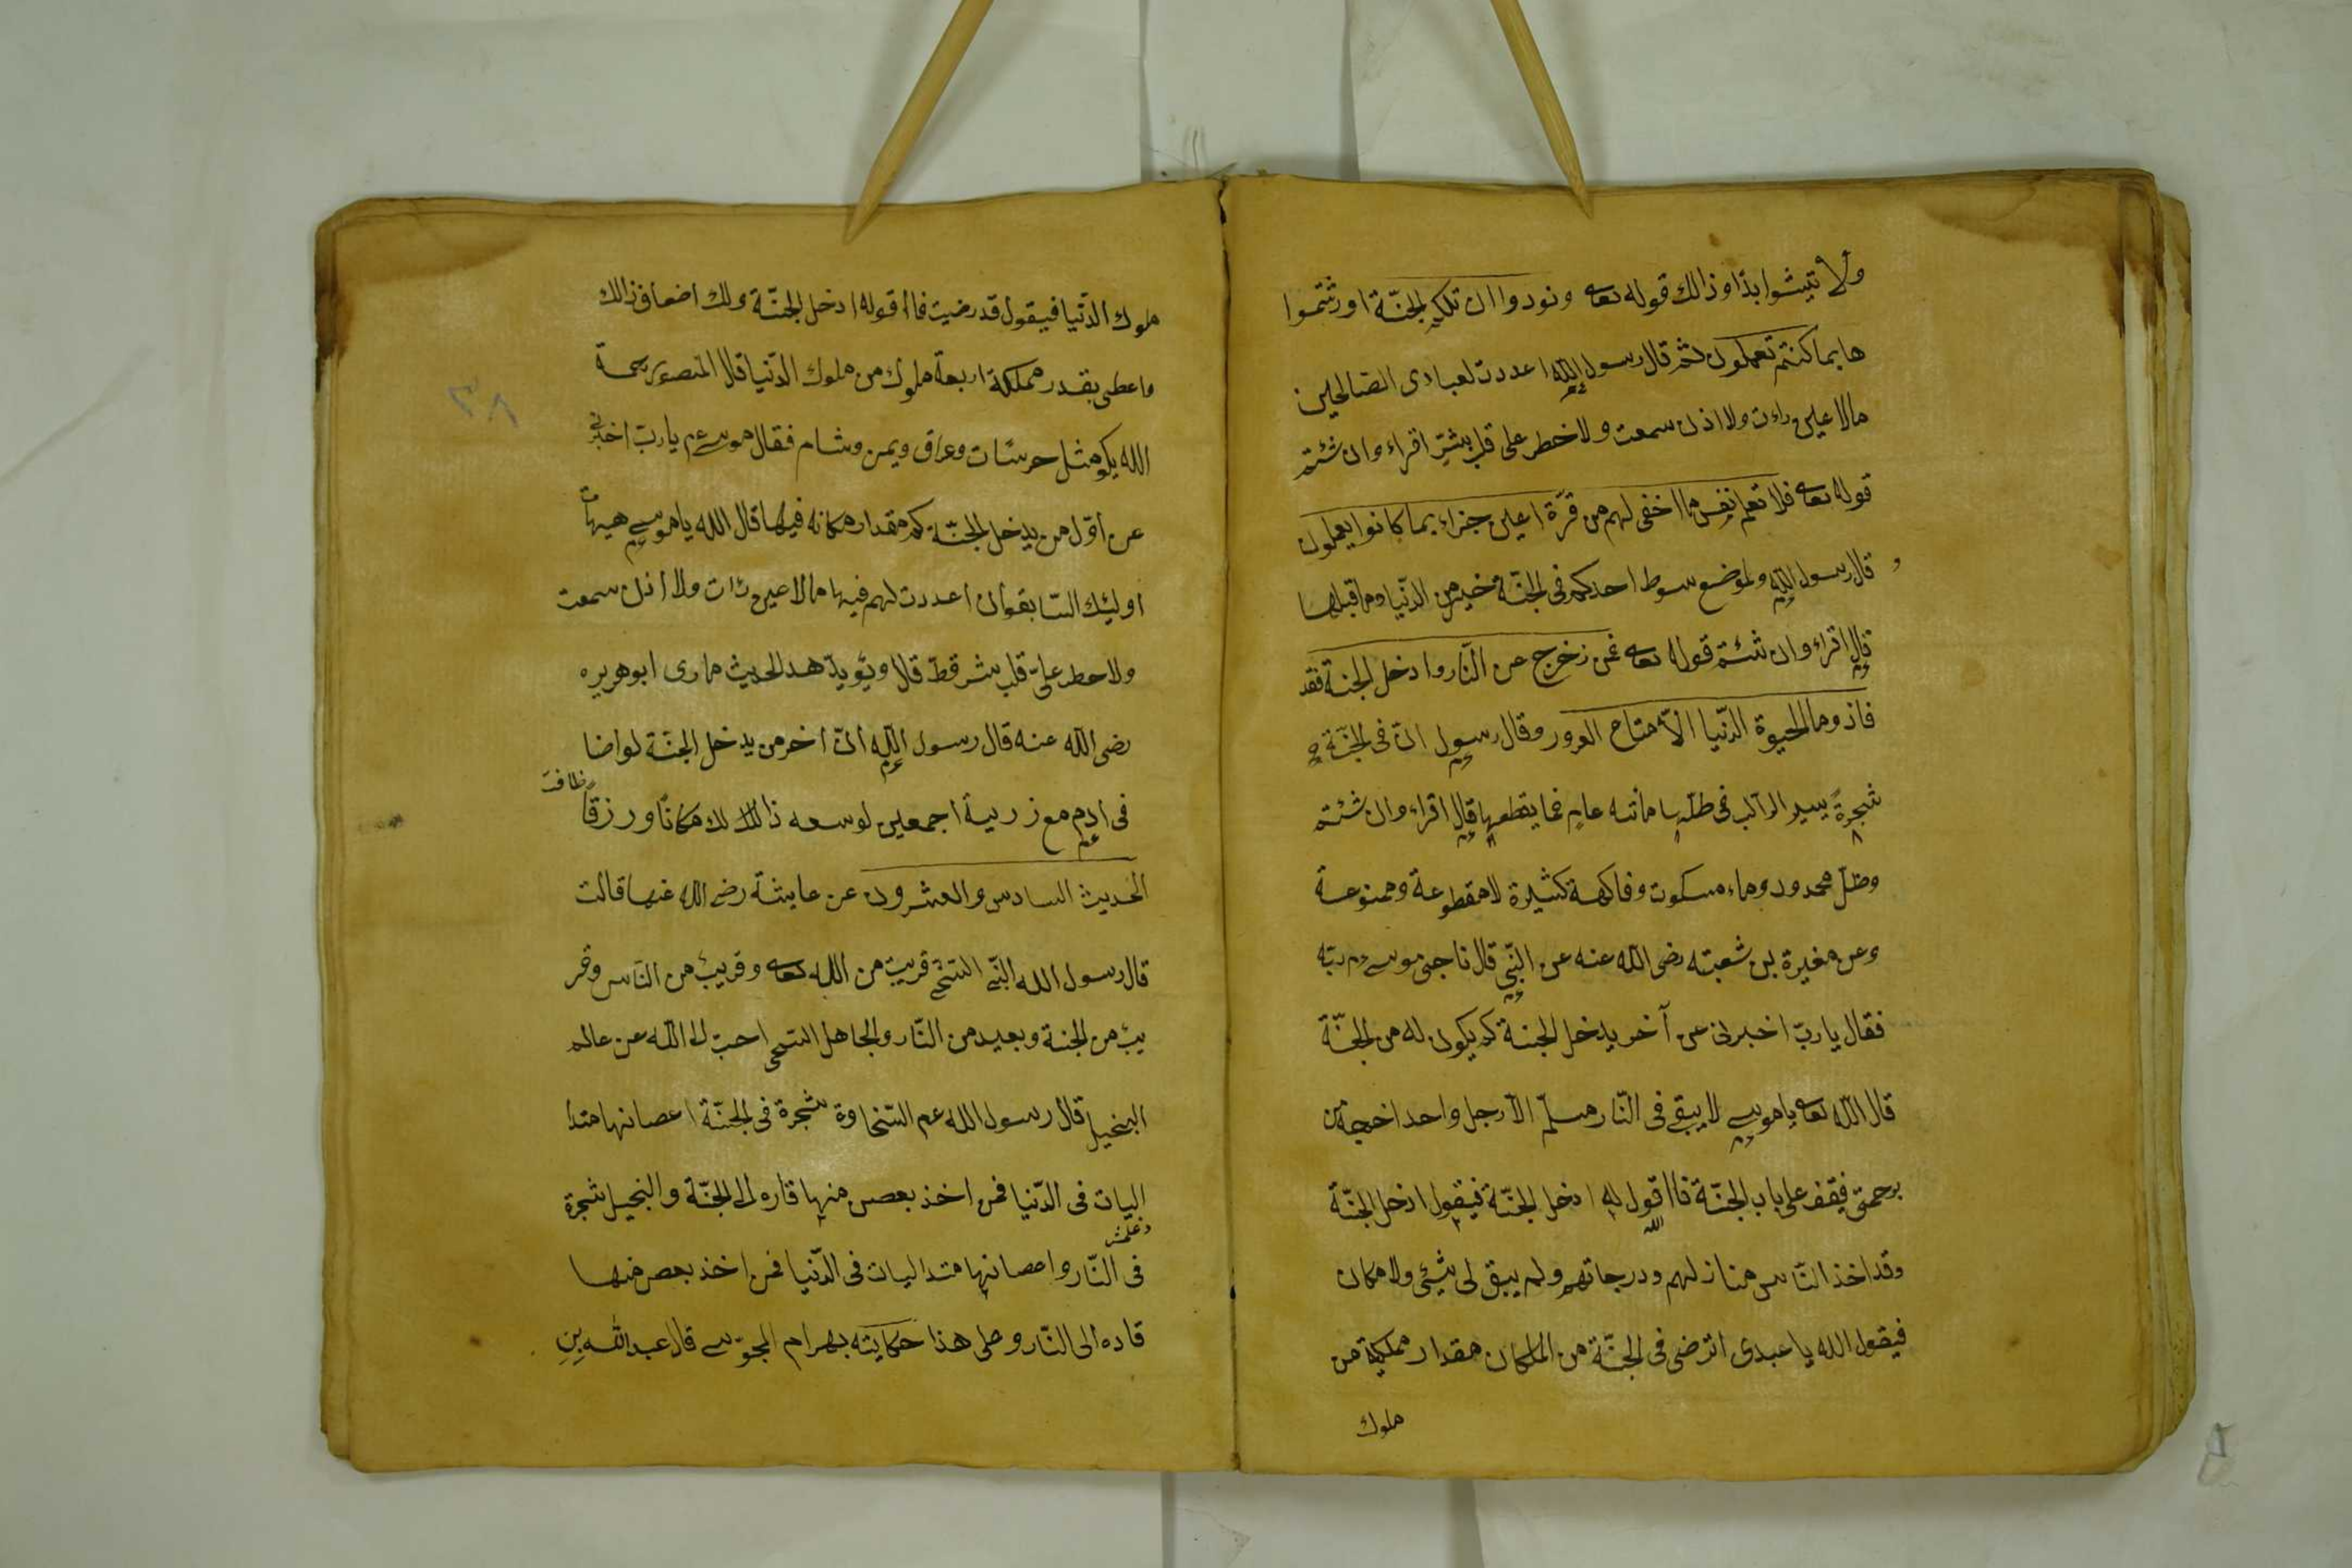 ولا تيئسوا بدا وذالك قوله تعا ونودوا ان تلكم الجنّة اورثتموا
ها بما كنتم تعملون ثم قال رسول الله اعددت لعبادى الصّالحين
مالا عين راءت ولا اذن سمعت ولا خطر على قلب بشر اقراء وان شئتم
قوله تعا فلا تعلم نفس ما اخفى لهم من قرّة اعين جزاء بما كانوا يعملون
و قال رسول الله ولموضع سوط احدكم فى الجنّة خير من الدّنيا وما قبلها
قال اقراء وان شئتم قوله تعا فمن زخرج عن النّار وادخل الجنة فقد
فاذ وما الحيوة الدّنيا الاّ متاع الغرور وقال رسول انّ فى الجنّة
شجرة يسير الراكب فى ظلّها مائته عام فما يقطعها قال اقراء وان شئتم
وظلّ ممدود وماء مسكوت وفاكهة كثيرة لا مقطوعة وممنوعة
وعن مغيرة بن شعبته رضى الله عنه عن النّبى قال ناجى موسى عم ربّه
فقال يا ربّ اخبرنى عن آخر يدخل الجنة كم يكون له من الجنّة
قال الله تعا يا موسى لا يبقى فى النّار مسلّم الاّ رجل واحد اخرجه من
برحمتى فيقف على باب الجنّة فااقول له ادخل الجنّة فيقول ادخل الجنّة
وقد اخذ النّاس منازلهم ودرجاتهم ولم يبق لى شئ ولا مكان
فيقول الله يا عبدى اترضى فى الجنّة من المكان مقدار مملكة من
ملوك
ملوك الدّنيا فيقول قد رضيت فااقوله ادخل الجنّة ولك اضعاف ذالك
واعطى بقدر مملكة اربعة ملوك من ملوك الدّنيا قال
الله يكو مثل وعراق ويمن وشام فقال موسى عم يا ربّ اخبرنى
عن اوّل من يدخل الجنّة كم مقدار مكانه فيها قال الله يا موسى هيهات
اوليئك السّابقون اعددت لهم فيها مالا عين رات ولا اذن سمعت
ولا حطر علىّ قلب بشر قطّ قال ويؤيد هد الحديث ماروى ابو هريره
رضى الله عنه قال رسول الله انّ اخر من يدخل الجنّة لو اضا
ظافت
فى ادم مع زرية اجمعين لوسعه ذالك لك مكانًا ورزقًا
الحديث السادس والعشرون عن عايشة رضى الله عنها قالت
قال رسول الله النّبى السّخى قريب من الله تعا وقريب من النّاس وقر
يب من الجنة وبعيد من النّار والجاهل السّخى احبّ الى الله عن عالم
البخيل قال رسول الله عم السّخاوة شجرة فى الجنّة اعصانها متدا
اليات فى الدّنيا فمن اخذ بعص منها قاره الى الجنّة والبخيل شجرة
فى النّار واعصانها متداليات فى الدّنيا فمن اخذ بعص منها
قاده الى النّار وعلى هذا حكايته بهرام المجوّسى قال عبد الله بن